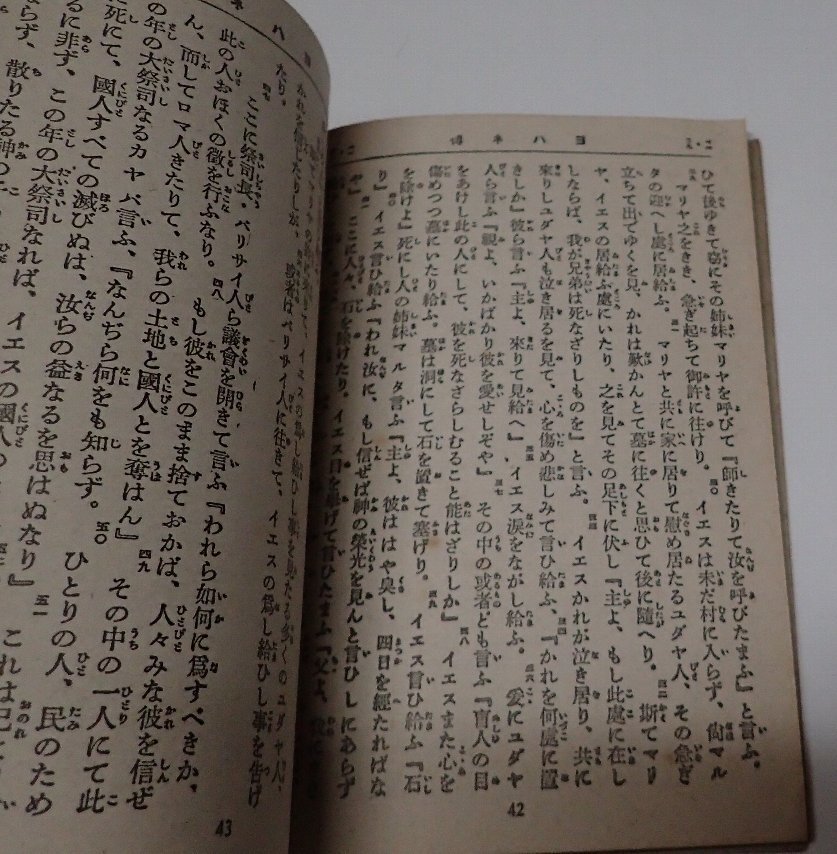 ヨハネ傳
ひて後ゆきて竊にその姉妹マリヤを呼びて『師きたりて汝を呼びたまふ』と言ふ。
マリヤ之をきき、急ぎ起ちて御許に往けり。三〇 イエスは未だ村に入らず、尙マル
タの迎へし處に居給ふ。三一 マリヤと共に家に居りて慰め居たるユダヤ人、その急ぎ
立ちて出でゆくを見、かれは歎かんとて墓に往くと思ひて後に隨へり。三二 斯てマリ
ヤ、イエスの居給ふ處にいたり、之を見てその足下に伏し『主よ、もし此處に在し
しならば、我が兄弟は死なざりしものを』と言ふ。三三 イエスかれが泣き居り、共に
來りしユダヤ人も泣き居るを見て、心を傷め悲しみて言ひ給ふ、三四『かれを何處に置
きしか』彼ら言ふ『主よ、來りて見給へ』三五 イエス涙をながし給ふ。三六 爰にユダヤ
人ら言ふ『視よ、いかばかり彼を愛せしぞや』三七 その中の或者ども言ふ『盲人の目
をあけし此の人にして、彼を死なざらしむること能はざりしか』三八 イエスまた心を
傷めつつ墓にいたり給ふ。墓は洞にして石を置きて塞げり。三九 イエス言ひ給ふ『石
を除けよ』死にし人の姉妹マルタ言ふ『主よ、彼ははや臭し、四日を經たればな
り』四〇 イエス言ひ給ふ『われ汝に、もし信ぜば神の榮光を見んと言ひしにあらず
や』四一 ここに人々、石を除けたり。イエス目を擧げて言ひたまふ『父よ、我に
42
ヨハネ
マリヤの許に來りて、イエスの爲し給ひし事を見たる多くのユダヤ人、
かれを信じたりしが、或者はパリサイ人に往きて、イエスの爲し給ひし事を告げ
たり。
ここに祭司長、パリサイ人ら議會を開きて言ふ『われら如何に爲すべきか、
此の人おほくの徴を行ふなり。四八 もし彼をこのまま捨ておかば、人々みな彼を信ぜ
ん、而してロマ人きたりて、我らの土地と國人とを奪はん』四九 その中の一人にて此
の年の大祭司なるカヤパ言ふ、『なんぢら何をも知らず。五〇 ひとりの人、民のため
に死にて、國人すべての滅びぬは、汝らの益なるを思はぬなり』五一 これは己
るに非ず、この年の大祭司なれば、イエスの國人の
ならず、散りたる神の
43